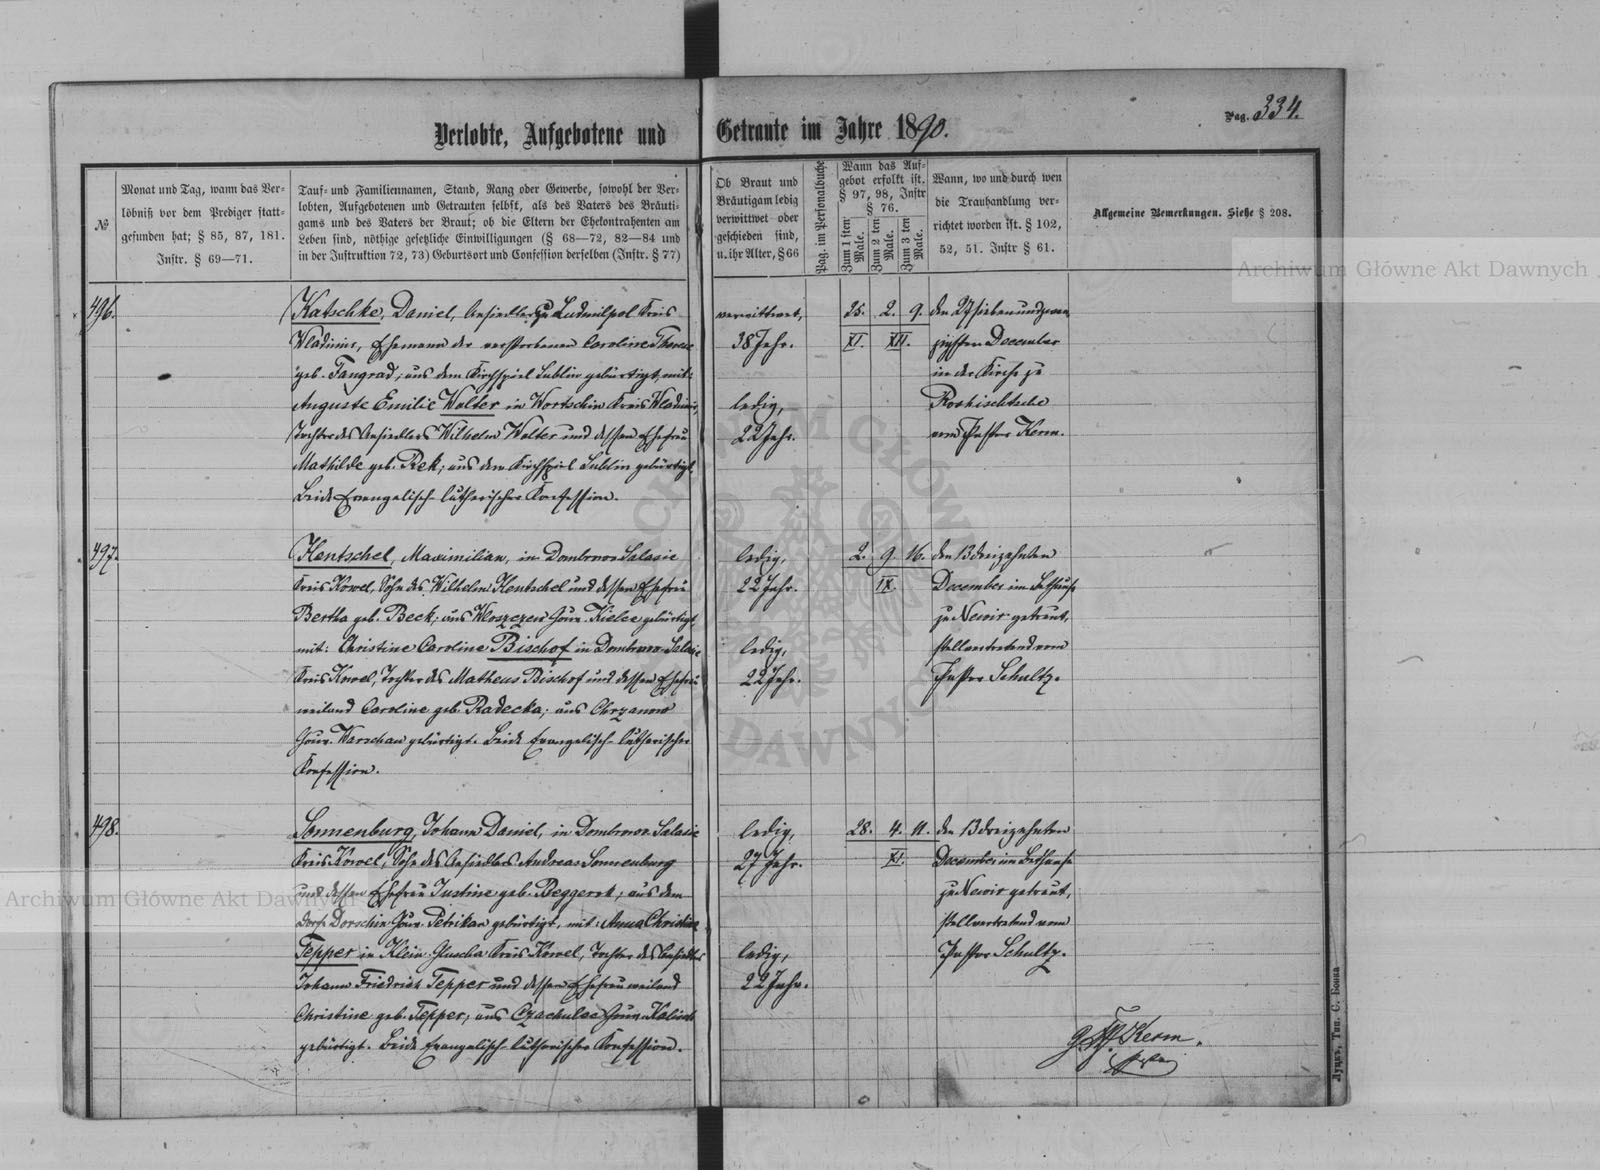 Pag. 334.
Verlobte, Aufgebotene und Getraute im Jahre 1890.
№
Monat und Tag, wann das Ver-
löbniß vor dem Prediger statt-
gefunden hat; § 85, 87, 181.
Instr. § 69—71.
Tauf- und Familiennamen, Stand, Rang oder Gewerbe, sowohl der Ver-
lobten, Aufgebotenen und Getrauten selbst, als des Vaters des Bräuti-
gams und des Vaters der Braut; ob die Eltern der Ehekontrahenten am
Leben sind, nöthige gesetzliche Einwilligungen (§ 68—72, 82—84 und
in der Instruktion 72, 73) Geburtsort und Confession derselben (Instr. § 77)
Ob Braut und
Bräutigam ledig
verwittwet oder
geschieden sind,
u. ihr Alter, § 66
Pag. im Personalbuche
Wann das Auf-
gebot erfolgt ist.
§ 97, 98, Instr
§ 76.
Zum 1 sten Male.
Zum 2 ten Male.
Zum 3 ten Male.
Wann, wo und durch wen
die Trauhandlung ver-
richtet worden ist. § 102,
52, 51. Instr § 61.
Allgemeine Bemerkungen. Siehe § 208.
496.
Katschke, Daniel, Ansiedler zu Ludmilpol Kreis
Wladimir, Ehemann der verstorbenen Caroline Therese
geb. Fangrad; aus dem Kirchspiel Lublin gebürtigt, mit:
Auguste Emilie Walter in Wortschin Kreis Wladimir,
Tochter des Ansiedlers Wilhelm Walter und dessen Ehefrau
Mathilde geb. Rek; aus dem Kirchspiel Lublin gebürtigt.
Beide Evangelisch-lutherischer Konfession.
verwittwet,
38 Jahr.
ledig,
22 Jahr.
25. 2. 9.
XI. XII.
den 27 siebenundzwan-
zigsten December
in der Kirche zu
Roshischtsche
vom Pastor Kerm.
497.
Hentschel, Maximilian, in Dombrowo Salasie
Kreis Kowel, Sohn des Wilhelm Hentschel und dessen Ehefrau
Bertha geb. Beck; aus Gouv. Kielce gebürtigt,
mit: Christine Caroline Bischof in Dombrowo-Salasie
Kreis Kowel, Tochter des Matheus Bischof und dessen Ehefrau
weiland Caroline geb. Radecka; aus Chrzanow
Gouv. Warschau gebürtigt. Beide Evangelisch-lutherischer
Konfession.
ledig,
22 Jahr.
ledig,
22 Jahr.
2. 9. 16.
IX.
den 13 dreizehnten
December im Bethause
zu Newir getraut,
stellvertretend vom
Pastor Schultz.
498.
Sonnenburg, Johann Daniel, in Dombrowo Salasie
Kreis Kowel, Sohn des Ansiedlers Andreas Sonnenburg
und dessen Ehefrau Justine geb. Beggerok; aus dem
Dorfe Dorschin Gouv. Petrikau gebürtigt, mit: Anna Christine
Tepper in Klein-Gluscha Kreis Kowel, Tochter des Ansiedlers
Johann Friedrich Tepper und dessen Ehefrau weiland
Christine geb. Tepper; aus Czachulec Gouv. Kalisch
gebürtigt. Beide Evangelisch-lutherischer Konfession.
ledig,
27 Jahr.
ledig,
22 Jahr.
28. 4. 11.
XI.
den 13 dreizehnten
December im Bethause
zu Newir getraut,
stellvertretend vom
Pastor Schultz.
Kerm.
Pastor
Луцкъ, Тип. С. Бонка
Archiwum Główne Akt Dawnych
Archiwum Główne Akt Dawnych
ARCHIWUM GŁÓWNE AKT DAWNYCH